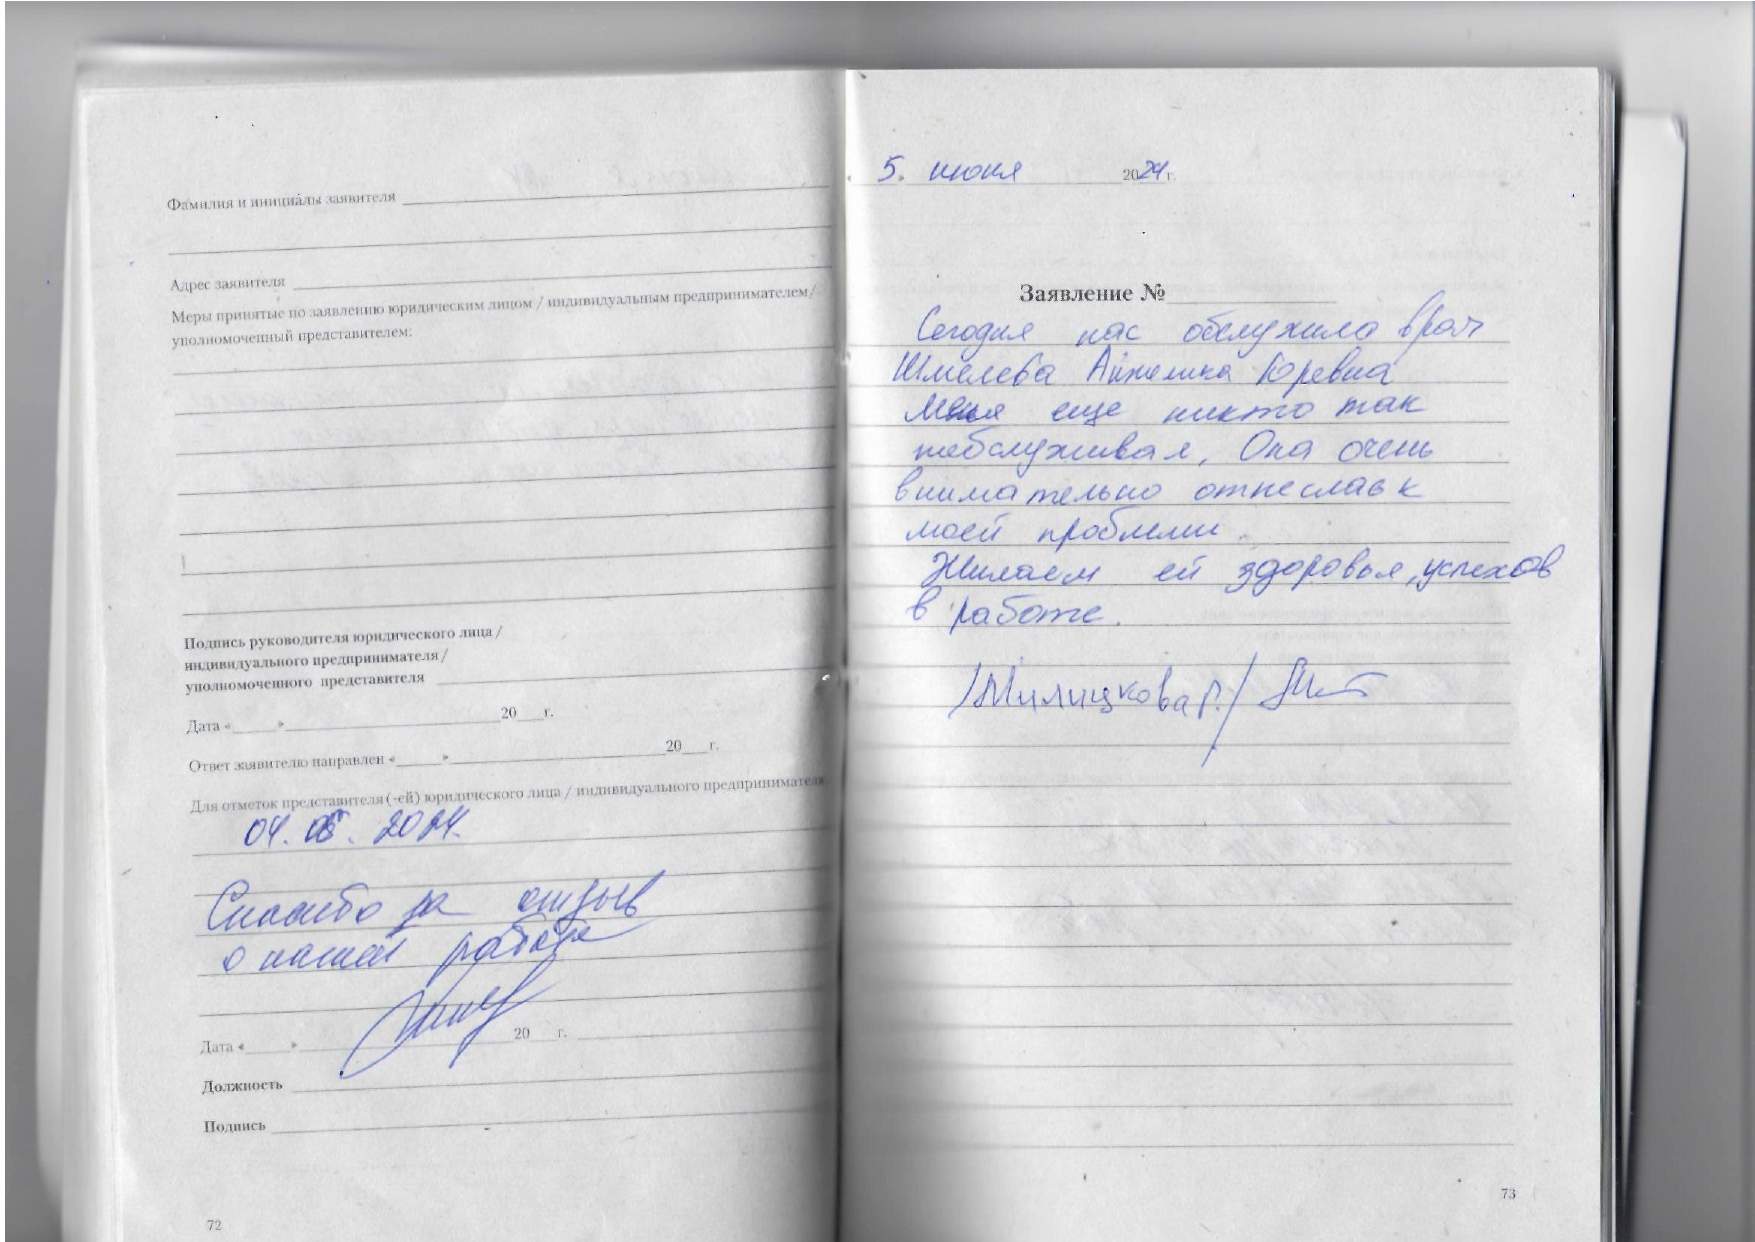 Фамилия и инициалы заявителя
Адрес заявителя
Меры принятые по заявлению юридическим лицом / индивидуальным предпринимателем/
уполномоченный представителем:
Подпись руководителя юридического лица /
индивидуального предпринимателя /
уполномоченного представителя
Дата «____»____20___г.
Ответ заявителю направлен «____»____20___г.
Для отметок представителя (-ей) юридического лица / индивидуального предпринимателя
04.06.2024.
Спасибо за отзыв
о нашей работе
Дата «____»____20___г.
Должность
Подпись
72
5. июня 2024 г.
Заявление №
Сегодня нас обслужила врач
Шмелева Анжелика Юревна
Меня еще никто так
необслуживал, Она очень
внимательно отнеслась к
моей проблеми.
Жилаем ей здоровья, успехов
в работе.
/Милицкова Г./
73